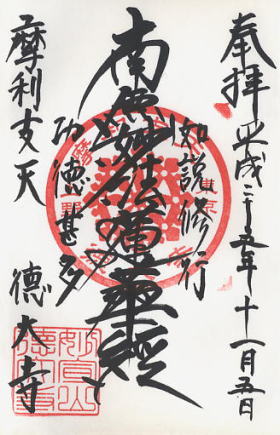 奉拝 平成二十五年十一月五日
如説修行
南無妙法蓮華経
功徳甚多
摩利支天 徳大寺